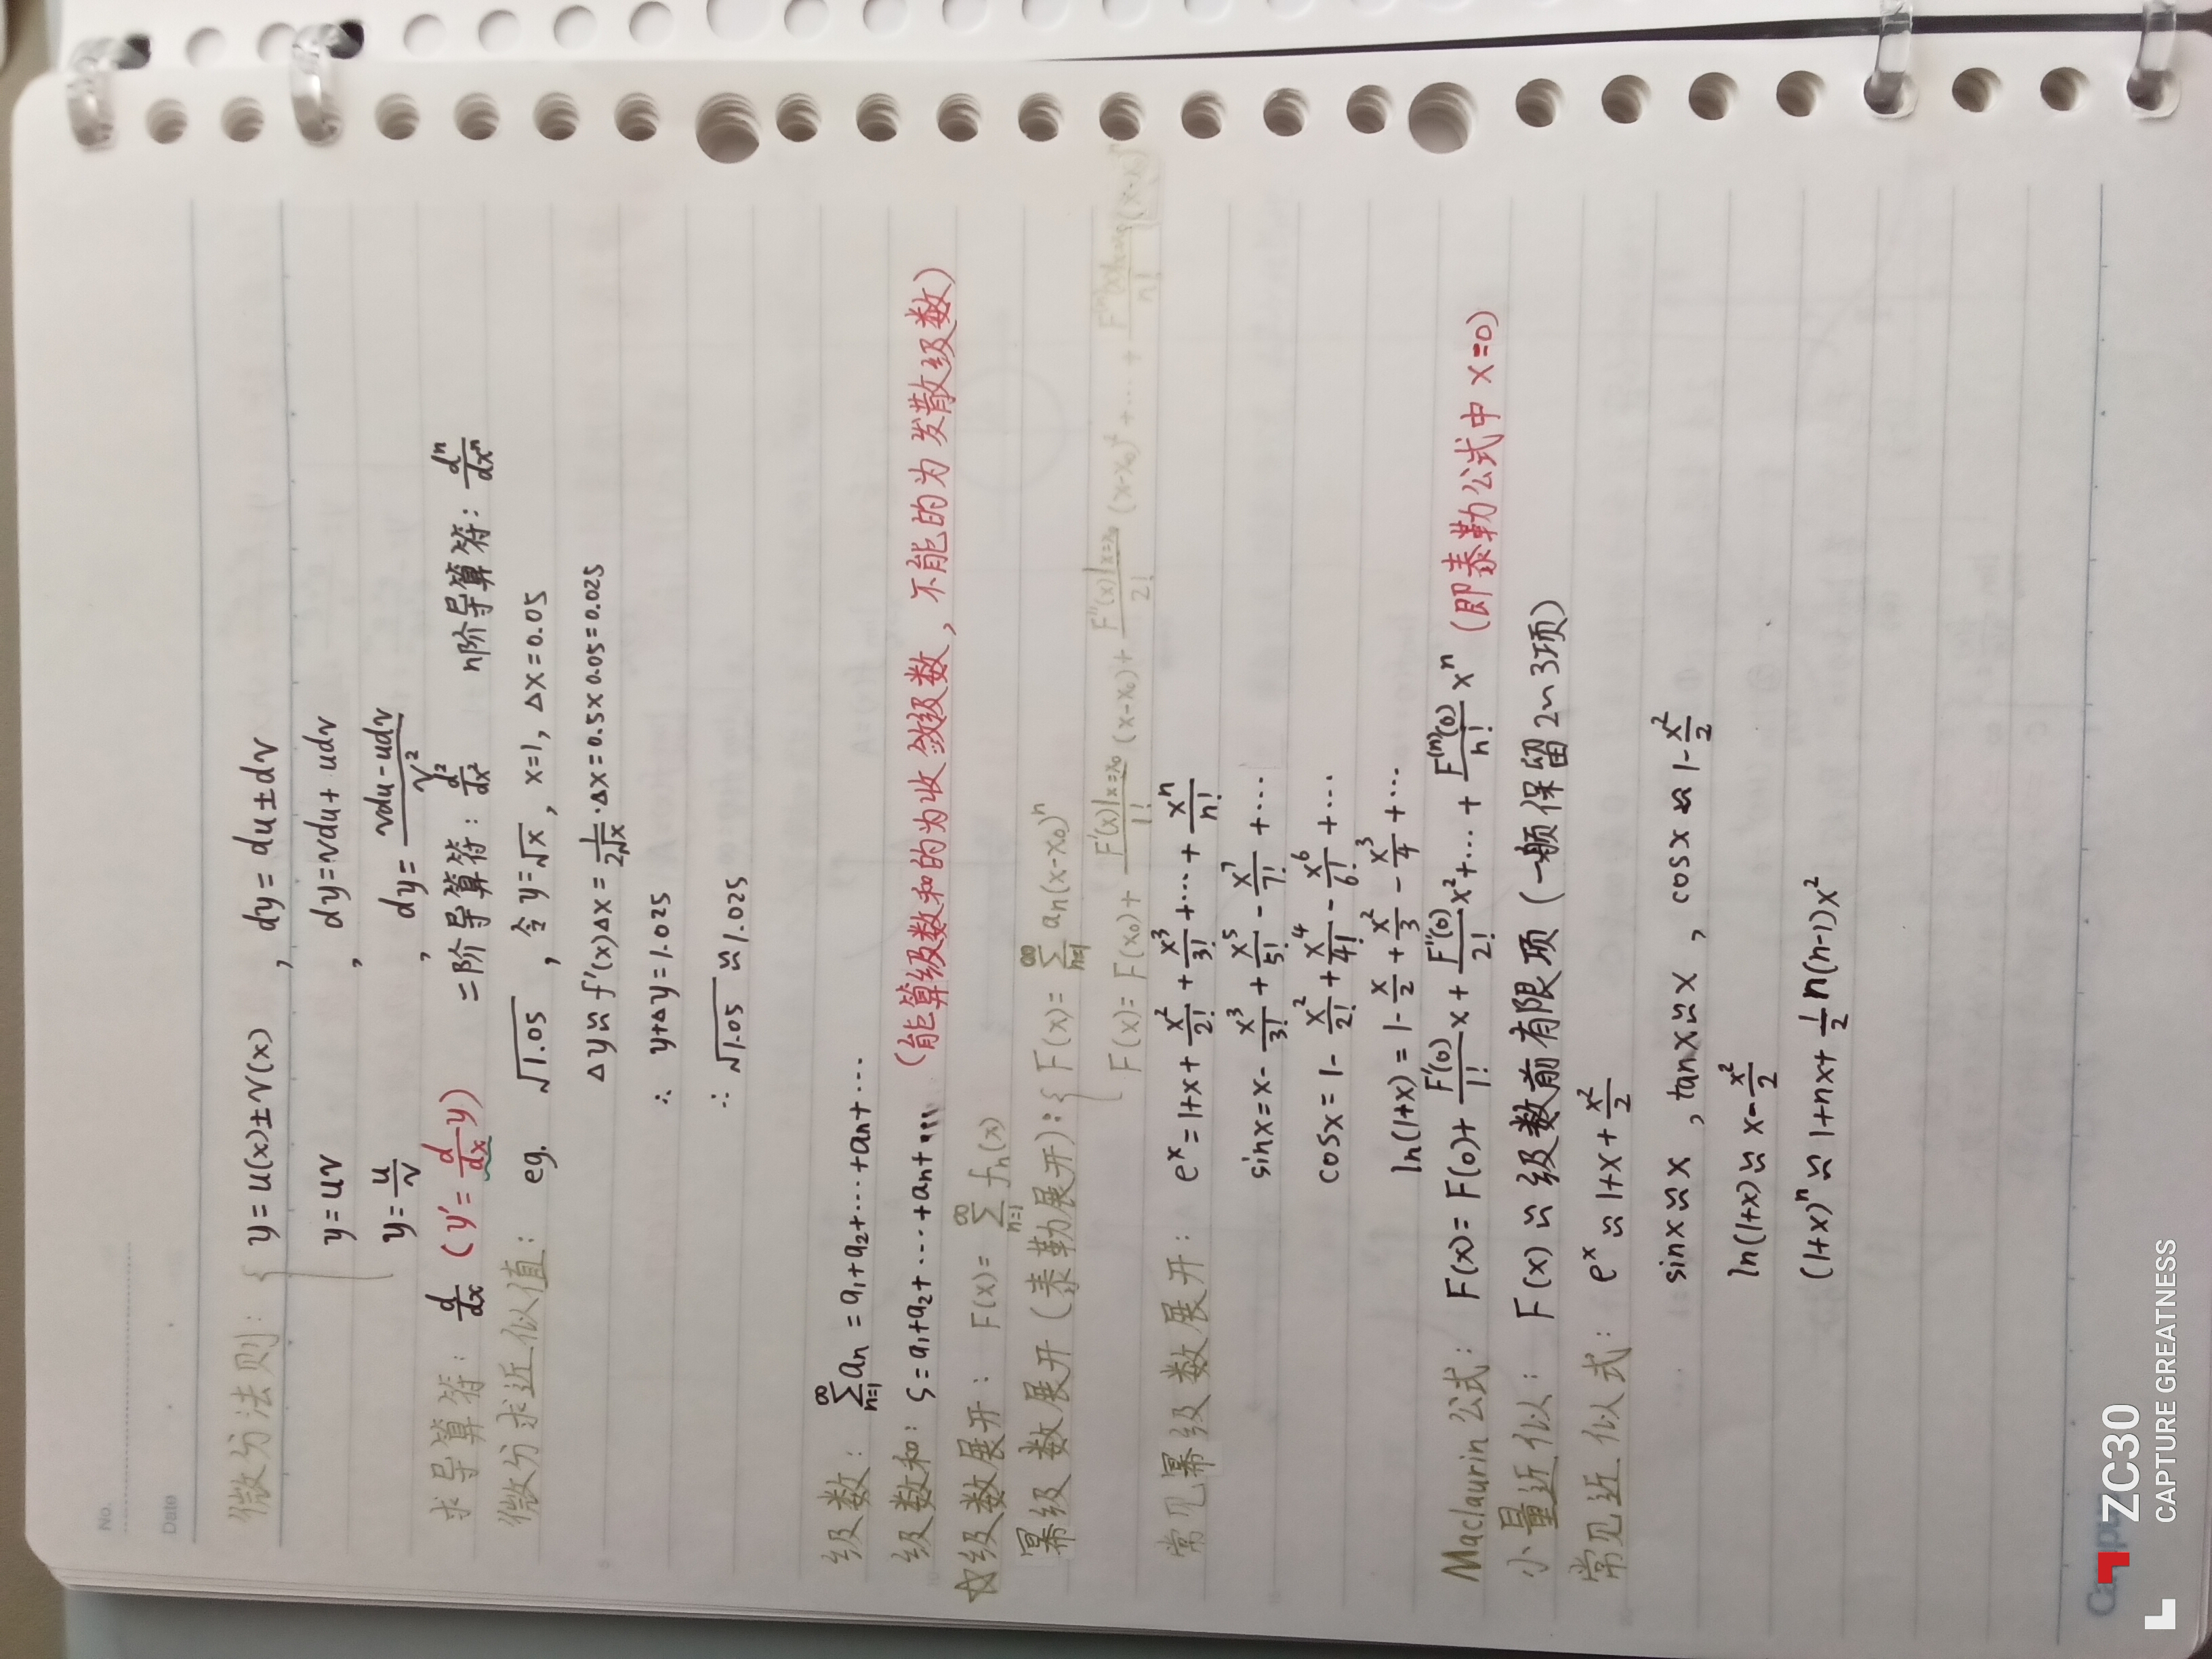 No.
Date
微分法则：{ y=u(x)±v(x) , dy=du±dv
y=uv , dy=vdu+udv
y=\frac{u}{v} , dy=\frac{vdu-udv}{v^2}
求导算符：\frac{d}{dx} (y'=\frac{d}{dx}y) 二阶导算符：\frac{d^2}{dx^2} n阶导算符：\frac{d^n}{dx^n}
微分求近似值： eg. \sqrt{1.05} , 令y=\sqrt{x}, x=1, Δx=0.05
Δy≈f'(x)Δx=\frac{1}{2\sqrt{x}}·Δx=0.5×0.05=0.025
∴ y+Δy=1.025
∴ \sqrt{1.05}≈1.025
级数：\sum_{n=1}^{∞}a_n=a_1+a_2+…+a_n+…
级数和：S=a_1+a_2+…+a_n+… (能算级数和的为收敛级数，不能的为发散级数)
☆级数展开：F(x)=\sum_{n=1}^{∞}f_n(x)
幂级数展开(泰勒展开)：{ F(x)=\sum_{n=1}^{∞}a_n(x-x_0)^n
F(x)=F(x_0)+\frac{F'(x)|x=x_0}{1!}(x-x_0)+\frac{F''(x)|x=x_0}{2!}(x-x_0)^2+…+\frac{F^{(n)}(x)|x=x_0}{n!}(x-x_0)^n
常见幂级数展开：e^x=1+x+\frac{x^2}{2!}+\frac{x^3}{3!}+…+\frac{x^n}{n!}
sinx=x-\frac{x^3}{3!}+\frac{x^5}{5!}-\frac{x^7}{7!}+…
cosx=1-\frac{x^2}{2!}+\frac{x^4}{4!}-\frac{x^6}{6!}+…
ln(1+x)=1-\frac{x}{2}+\frac{x^2}{3}-\frac{x^3}{4}+…
Maclaurin公式：F(x)=F(0)+\frac{F'(0)}{1!}x+\frac{F''(0)}{2!}x^2+…+\frac{F^{(n)}(0)}{n!}x^n (即泰勒公式中x=0)
小量近似：F(x)≈级数前有限项(一般保留2~3项)
常见近似式：e^x≈1+x+\frac{x^2}{2}
sinx≈x , tanx≈x , cosx≈1-\frac{x^2}{2}
ln(1+x)≈x-\frac{x^2}{2}
(1+x)^n≈1+nx+\frac{1}{2}n(n-1)x^2
ZC30
CAPTURE GREATNESS